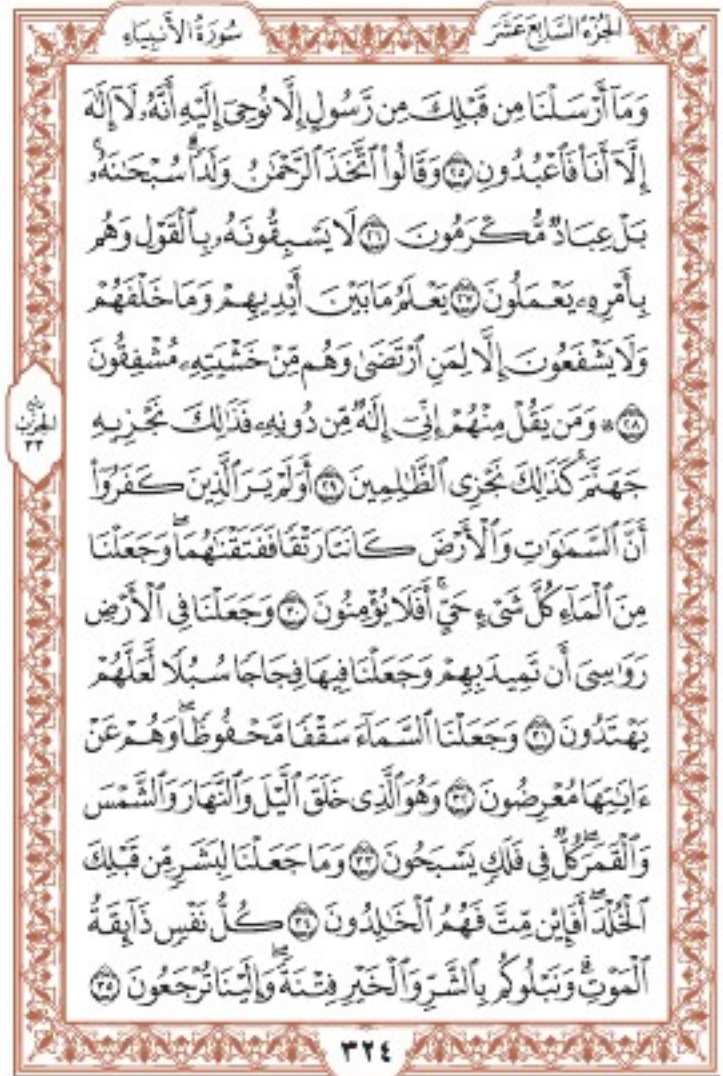 سُورَةُ الأَنبِيَاءِ
الجُزْءُ السَّابِعَ عَشَرَ
وَمَآ أَرْسَلْنَا مِن قَبْلِكَ مِن رَّسُولٍ إِلَّا نُوحِىٓ إِلَيْهِ أَنَّهُۥ لَآ إِلَٰهَ
إِلَّآ أَنَا۠ فَٱعْبُدُونِ ٢٥ وَقَالُوا۟ ٱتَّخَذَ ٱلرَّحْمَٰنُ وَلَدًۭا ۗ سُبْحَٰنَهُۥ ۚ
بَلْ عِبَادٌۭ مُّكْرَمُونَ ٢٦ لَا يَسْبِقُونَهُۥ بِٱلْقَوْلِ وَهُم
بِأَمْرِهِۦ يَعْمَلُونَ ٢٧ يَعْلَمُ مَا بَيْنَ أَيْدِيهِمْ وَمَا خَلْفَهُمْ
وَلَا يَشْفَعُونَ إِلَّا لِمَنِ ٱرْتَضَىٰ وَهُم مِّنْ خَشْيَتِهِۦ مُشْفِقُونَ
٢٨ ۞ وَمَن يَقُلْ مِنْهُمْ إِنِّىٓ إِلَٰهٌۭ مِّن دُونِهِۦ فَذَٰلِكَ نَجْزِيهِ
جَهَنَّمَ ۚ كَذَٰلِكَ نَجْزِى ٱلظَّٰلِمِينَ ٢٩ أَوَلَمْ يَرَ ٱلَّذِينَ كَفَرُوٓا۟
أَنَّ ٱلسَّمَٰوَٰتِ وَٱلْأَرْضَ كَانَتَا رَتْقًۭا فَفَتَقْنَٰهُمَا ۖ وَجَعَلْنَا
مِنَ ٱلْمَآءِ كُلَّ شَىْءٍ حَىٍّ ۖ أَفَلَا يُؤْمِنُونَ ٣٠ وَجَعَلْنَا فِى ٱلْأَرْضِ
رَوَٰسِىَ أَن تَمِيدَ بِهِمْ وَجَعَلْنَا فِيهَا فِجَاجًۭا سُبُلًۭا لَّعَلَّهُمْ
يَهْتَدُونَ ٣١ وَجَعَلْنَا ٱلسَّمَآءَ سَقْفًۭا مَّحْفُوظًۭا ۖ وَهُمْ عَنْ
ءَايَٰتِهَا مُعْرِضُونَ ٣٢ وَهُوَ ٱلَّذِى خَلَقَ ٱلَّيْلَ وَٱلنَّهَارَ وَٱلشَّمْسَ
وَٱلْقَمَرَ ۖ كُلٌّۭ فِى فَلَكٍۢ يَسْبَحُونَ ٣٣ وَمَا جَعَلْنَا لِبَشَرٍۢ مِّن قَبْلِكَ
ٱلْخُلْدَ ۖ أَفَإِي۟ن مِّتَّ فَهُمُ ٱلْخَٰلِدُونَ ٣٤ كُلُّ نَفْسٍۢ ذَآئِقَةُ
ٱلْمَوْتِ ۗ وَنَبْلُوكُم بِٱلشَّرِّ وَٱلْخَيْرِ فِتْنَةًۭ ۖ وَإِلَيْنَا تُرْجَعُونَ ٣٥
الحِزْب
٣٣
٣٢٤